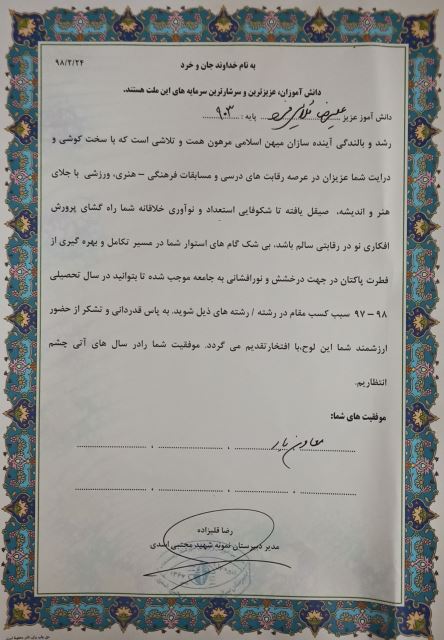 به نام خداوند جان و خرد
۹۸/۲/۲۴
دانش آموزان، عزیزترین و سرشارترین سرمایه های این ملت هستند.
دانش آموز عزیز علیرضا پایه : ۹۰۳
رشد و بالندگی آینده سازان میهن اسلامی مرهون همت و تلاشی است که با سخت کوشی و
درایت شما عزیزان در عرصه رقابت های درسی و مسابقات فرهنگی – هنری، ورزشی با جلای
هنر و اندیشه، صیقل یافته تا شکوفایی استعداد و نوآوری خلاقانه شما راه گشای پرورش
افکاری نو در رقابتی سالم باشد. بی شک گام های استوار شما در مسیر تکامل و بهره گیری از
فطرت پاکتان در جهت درخشش و نورافشانی به جامعه موجب شده تا بتوانید در سال تحصیلی
۹۸ – ۹۷ سبب کسب مقام در رشته / رشته های ذیل شوید. به پاس قدردانی و تشکر از حضور
ارزشمند شما این لوح،با افتخارتقدیم می گردد. موفقیت شما رادر سال های آتی چشم
انتظاریم.
موفقیت های شما:
معاون یار
رضا قلیزاده
مدیر دبیرستان نمونه شهید مجتبی اسدی